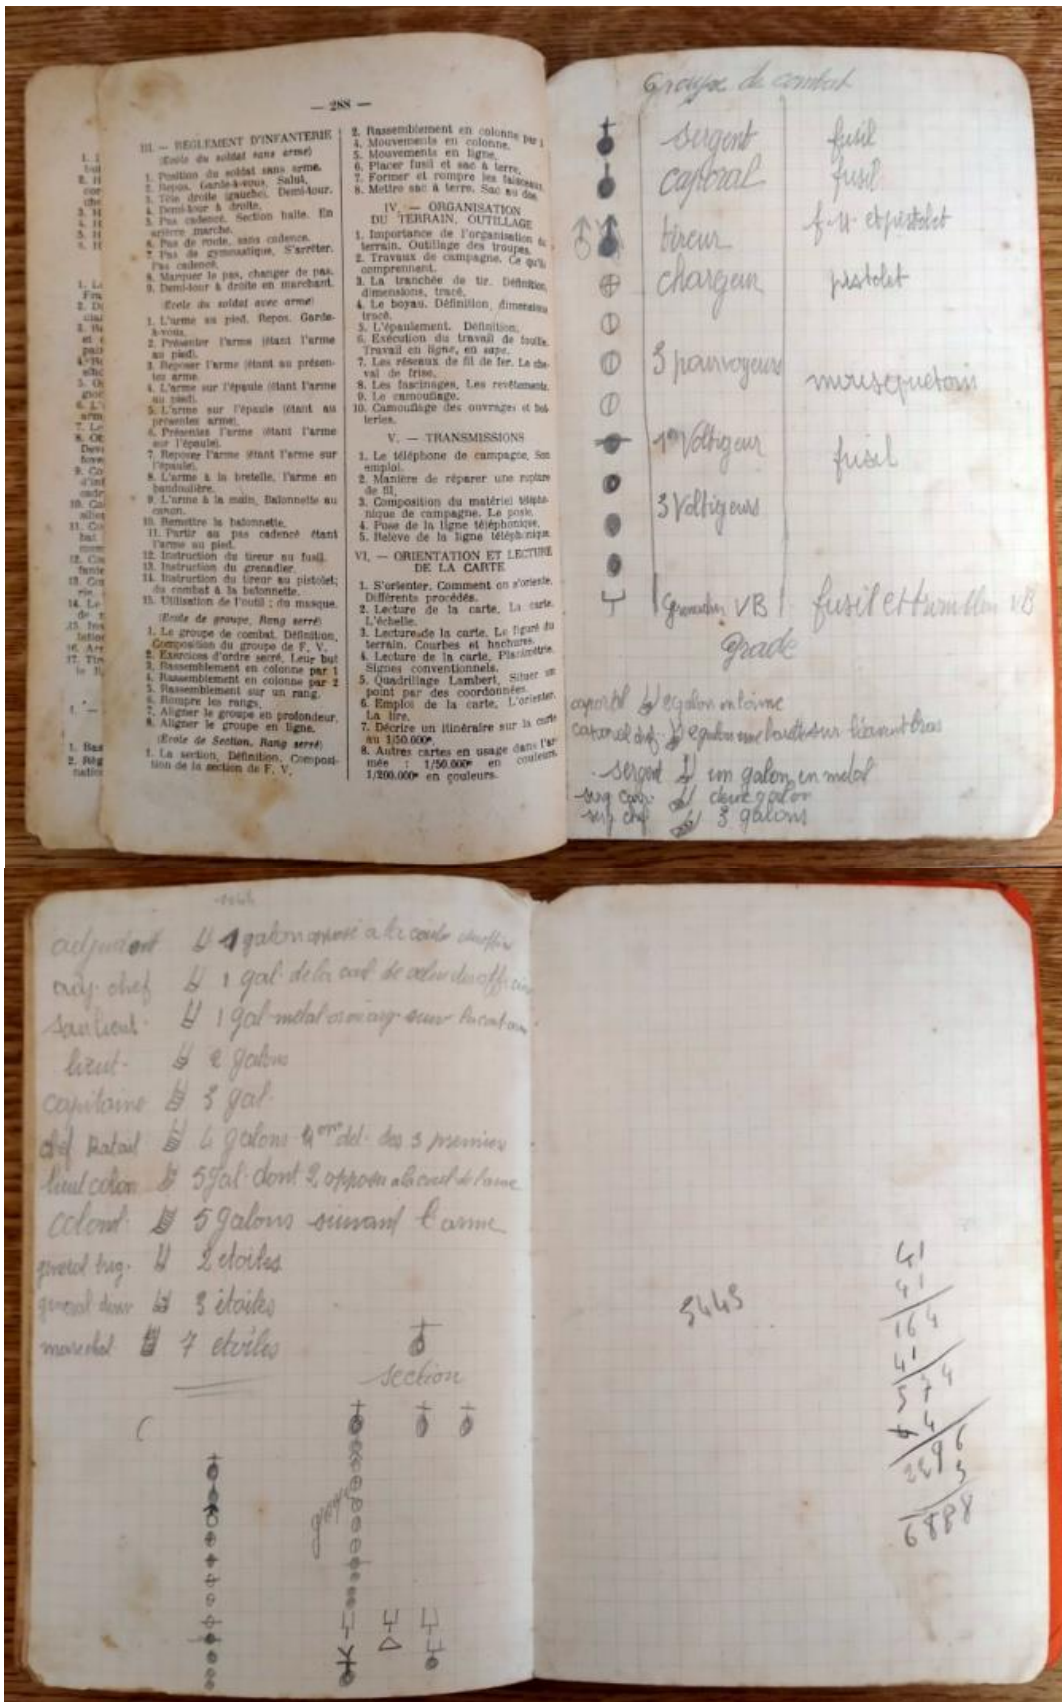 — 288 —
III. — RÈGLEMENT D'INFANTERIE
(Ecole du soldat sans arme)
1. Position du soldat sans arme.
2. Repos. Garde-à-vous. Salut.
3. Tête droite (gauche). Demi-tour.
4. Demi-tour à droite.
5. Pas cadencé. Section halte. En
arrière marche.
6. Pas de route, sans cadence.
7. Pas de gymnastique. S'arrêter.
Pas cadencé.
8. Marquer le pas, changer de pas.
9. Demi-tour à droite en marchant.
(Ecole du soldat avec arme)
1. L'arme au pied. Repos. Garde-
à-vous.
2. Présenter l'arme (étant l'arme
au pied).
3. Reposer l'arme (étant au présen-
tez arme.
4. L'arme sur l'épaule (étant l'arme
au pied).
5. L'arme sur l'épaule (étant au
présentez arme).
6. Présentez l'arme (étant l'arme
sur l'épaule).
7. Reposer l'arme (étant l'arme sur
l'épaule).
8. L'arme à la bretelle, l'arme en
bandoulière.
9. L'arme à la main. Baïonnette au
canon.
10. Remettre la baïonnette.
11. Partir au pas cadencé étant
l'arme au pied.
12. Instruction du tireur au fusil.
13. Instruction du grenadier.
14. Instruction du tireur au pistolet;
du combat à la baïonnette.
15. Utilisation de l'outil ; du masque.
(Ecole de groupe, Rang serré)
1. Le groupe de combat. Définition.
Composition du groupe de F. V.
2. Exercices d'ordre serré. Leur but
3. Rassemblement en colonne par 1
4. Rassemblement en colonne par 2
5. Rassemblement sur un rang.
6. Rompre les rangs.
7. Aligner le groupe en profondeur.
8. Aligner le groupe en ligne.
(Ecole de Section, Rang serré)
1. La section, Définition, Composi-
tion de la section de F. V.
2. Rassemblement en colonne par 1
4. Mouvements en colonne.
5. Mouvements en ligne.
6. Placer fusil et sac à terre.
7. Former et rompre les faisceaux.
8. Mettre sac à terre. Sac au dos.
IV. — ORGANISATION
DU TERRAIN, OUTILLAGE
1. Importance de l'organisation du
terrain. Outillage des troupes.
2. Travaux de campagne. Ce qu'ils
comprennent.
3. La tranchée de tir. Définition,
dimensions, tracé.
4. Le boyau. Définition, dimensions
tracé.
5. L'épaulement. Définition.
6. Exécution du travail de fouille.
Travail en ligne, en sape.
7. Les réseaux de fil de fer. Le che-
val de frise.
8. Les fascinages, Les revêtements.
9. Le camouflage.
10. Camouflage des ouvrages et bat
teries.
V. — TRANSMISSIONS
1. Le téléphone de campagne, Son
emploi.
2. Manière de réparer une rupture
de fil.
3. Composition du matériel télépho-
nique de campagne. Le poste.
4. Pose de la ligne téléphonique.
5. Relève de la ligne téléphonique.
VI. — ORIENTATION ET LECTURE
DE LA CARTE
1. S'orienter. Comment on s'oriente.
Différents procédés.
2. Lecture de la carte. La carte.
L'échelle.
3. Lecture de la carte. Le figuré du
terrain. Courbes et hachures.
4. Lecture de la carte. Planimétrie.
Signes conventionnels.
5. Quadrillage Lambert, Situer un
point par des coordonnées.
6. Emploi de la carte. L'orienter.
La lire.
7. Décrire un itinéraire sur la carte
au 1/50.000e.
8. Autres cartes en usage dans l'ar-
mée : 1/50.000e en couleurs.
1/200.000e en couleurs.
Groupe de combat
sergent fusil
caporal fusil
tireur f-M et pistolet
chargeur pistolet
3 pourvoyeurs mousqueton
1er Voltigeur fusil
3 Voltigeurs
Grenadier VB fusil et tromblon VB
Grade
caporal
caporal chef
sergent un galon en metal
deux galon
3 galons
adjudant 1 galon
adj. chef 1 gal de la coul.
sous lieut. 1 gal metal
lieut. 2 galons
capitaine 3 gal.
chef Batail 4 galons des 3 premiers
lieut colon 5 gal. dont 2
colonel 5 galons suivant l'arme
general brig. 2 etoiles
general 3 étoiles
marechal 7 etoiles
section
groupe
5445
41
41
164
41
574
4
2296
3
6888